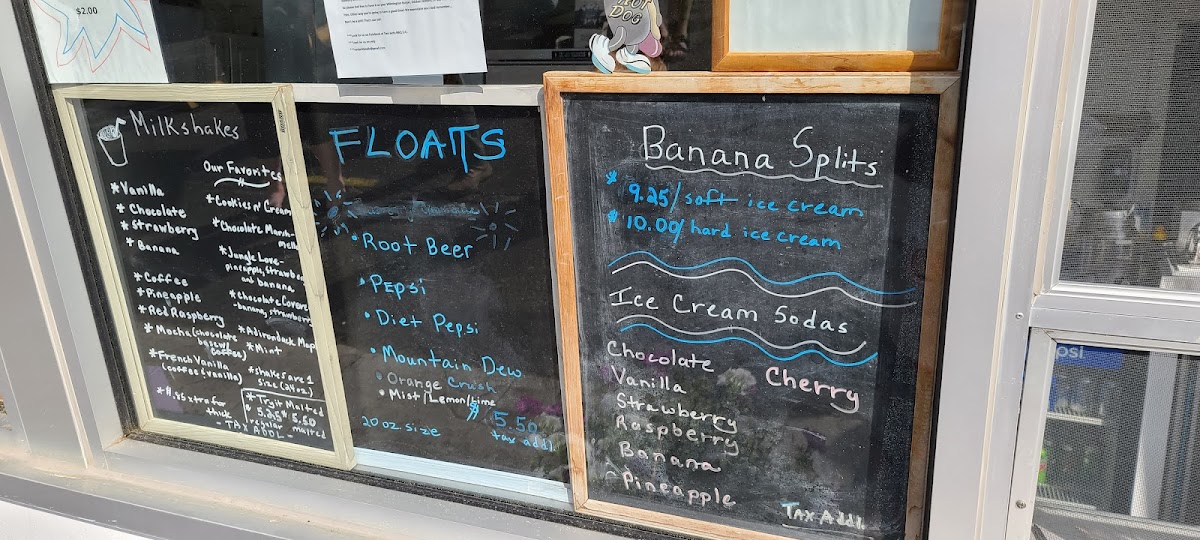 $2.00
HOT
DOG
Milkshakes
*Vanilla
*Chocolate
*Strawberry
*Banana
*Coffee
*Pineapple
*Red Raspberry
*Mocha (chocolate
coffee)
*French Vanilla
(coffee & vanilla)
thick
Our Favorites
*Cookies n' Cream
*Chocolate Marsh-
*Jungle Love-
pineapple, Strawber
and banana
*Chocolate Covere
-banana, strawberry
*Adirondack Map
*Mint
*shakes are 1
size (24oz.)
*Try it Malted
$5.25 $5.50
regular malted
-TAX ADDL-
FLOATS
• Root Beer
• Pepsi
• Diet Pepsi
• Mountain Dew
• Orange Crush
• Mist/Lemon/Lime
20 oz size
$5.50
tax addl
Banana Splits
* 9.25/ soft ice cream
* 10.00/ hard ice cream
Ice Cream Sodas
Chocolate
Cherry
Vanilla
Strawberry
Raspberry
Banana
Pineapple
TAX Addl
psi